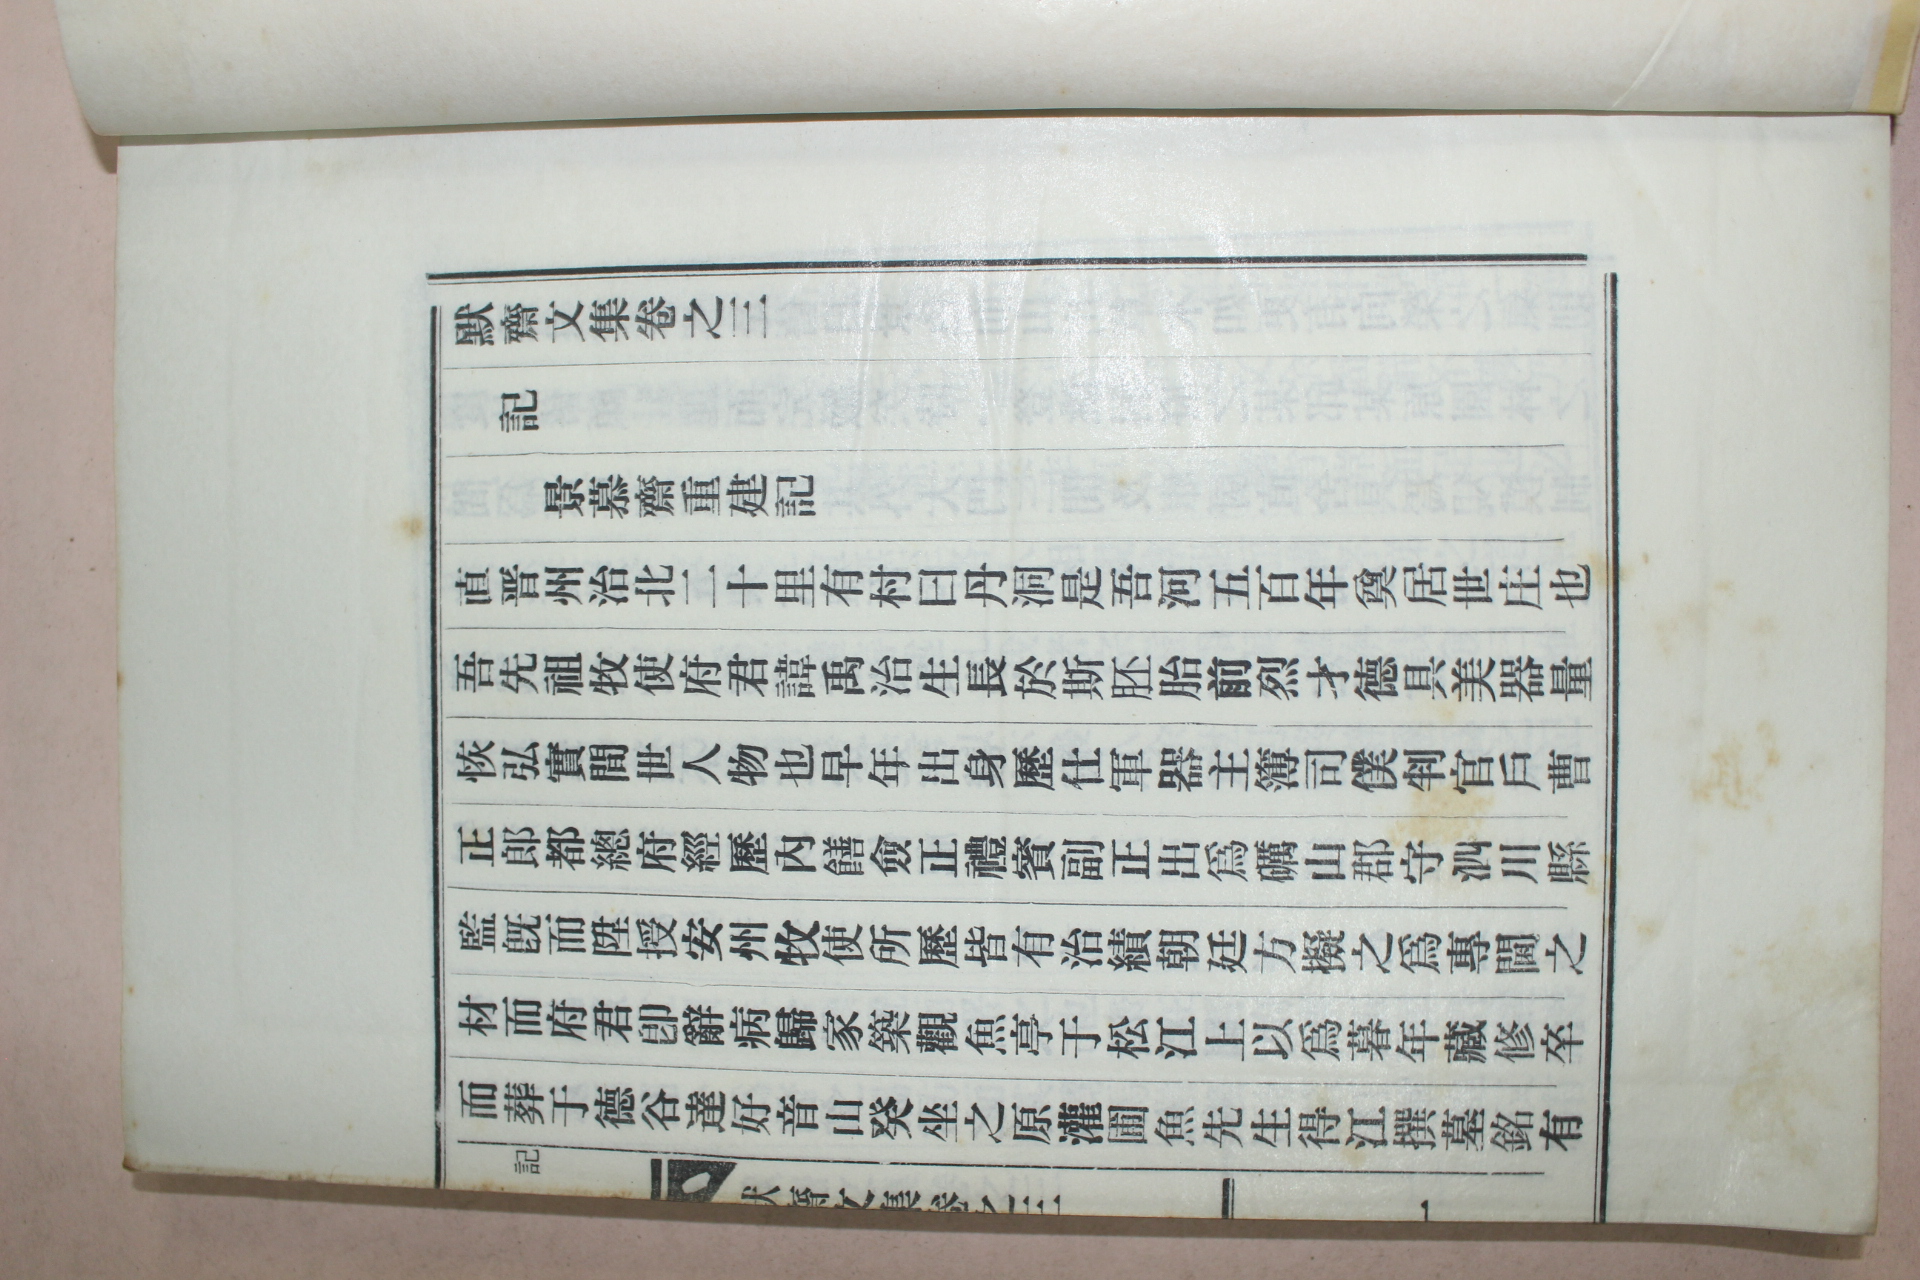 默齋文集卷之三
記
景慕齋重建記
直晋州治北二十里有村曰丹洞是吾河五百年奠居世庄也
吾先祖牧使府君諱禹治生長於斯胚胎前烈才德具美器量
恢弘實間世人物也早年出身歷仕軍器主簿司僕判官戶曹
正郎都總府經歷內饍僉正禮賓副正出爲礪山郡守泗川縣
監旣而陞授安州牧使所歷皆有治績朝廷方擬之爲專閫之
材而府君卽辭病歸家築觀魚亭于松江上以爲暮年藏修卒
而葬于德谷達好音山癸坐之原灌圃魚先生得江撰墓銘有
記
默齋文集卷之三
一